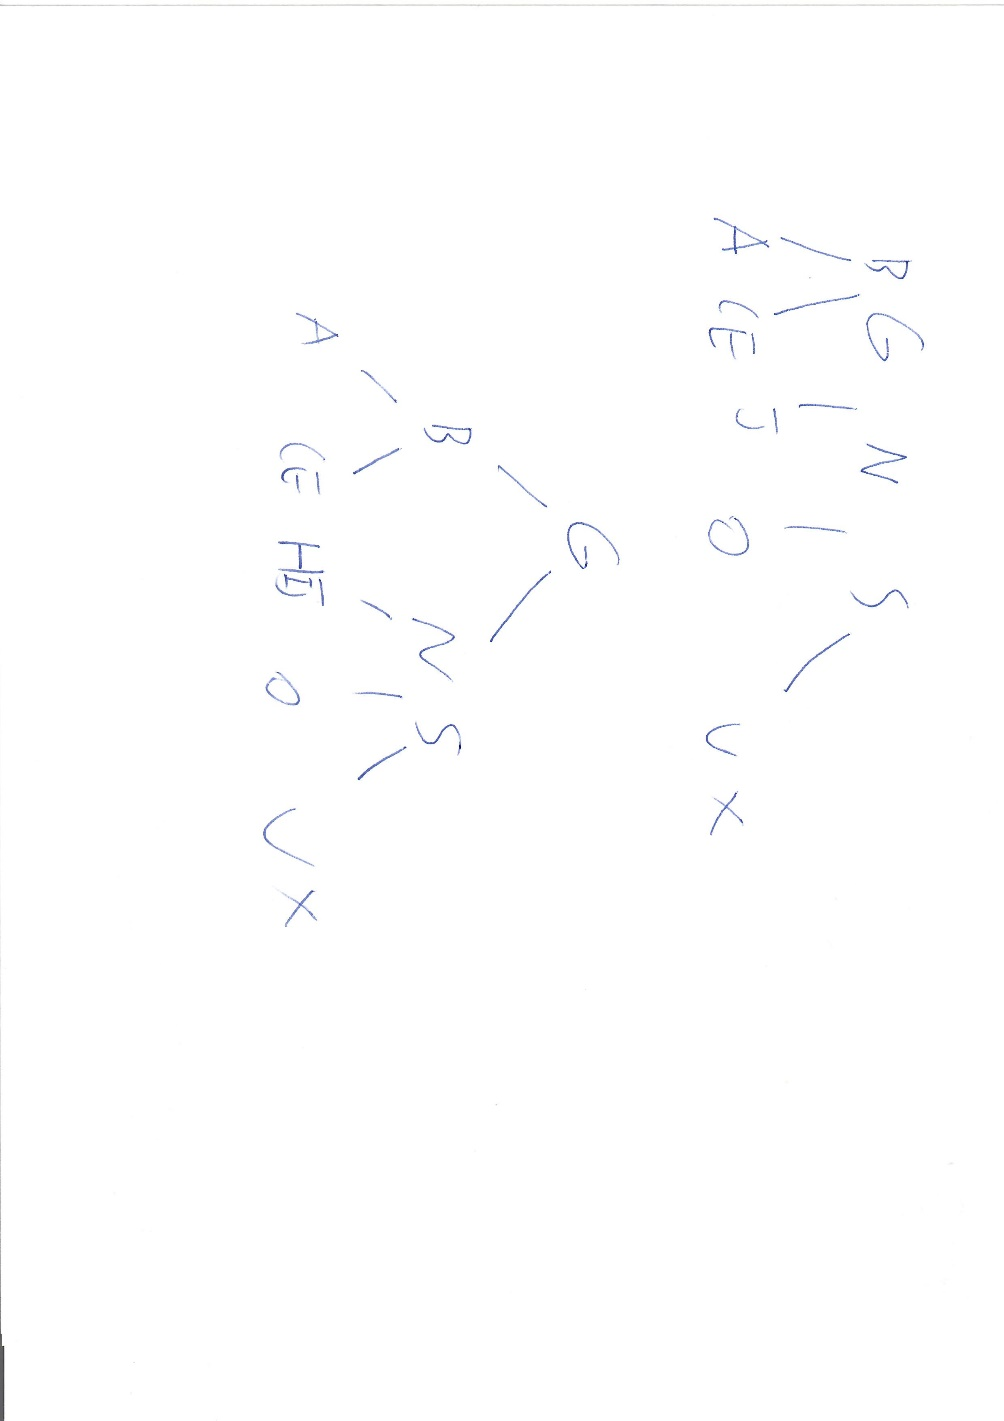 B G N S
A CE J O U X
G
B N S
A CE HIJ O U X